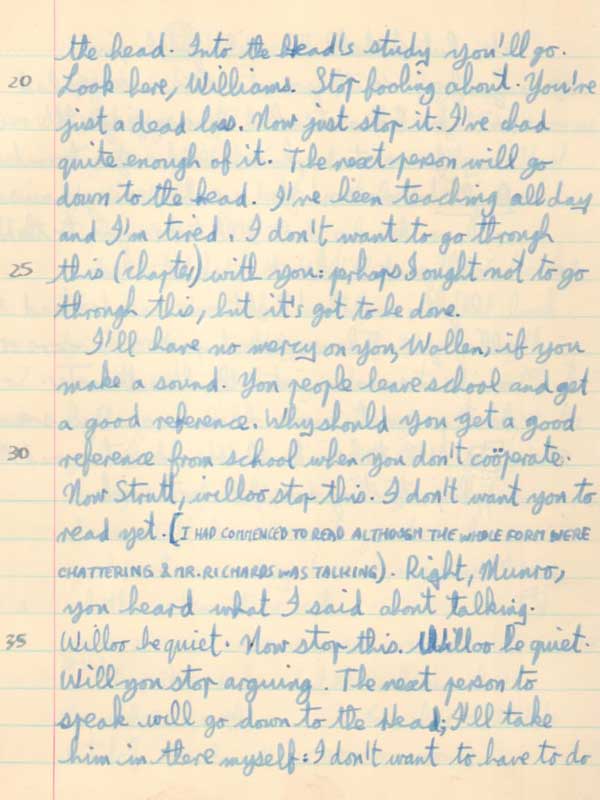 the head. Into the Head's study you'll go.
20 Look here, Williams. Stop fooling about. You're
just a dead loss. Now just stop it. I've had
quite enough of it. The next person will go
down to the head. I've been teaching all day
and I'm tired. I don't want to go through
25 this (chapter) with you: perhaps I ought not to go
through this, but it's got to be done.
I'll have no mercy on you, Wollen, if you
make a sound. You people leave school and get
a good reference. Why should you get a good
30 reference from school when you don't coöperate.
Now Strutt, willoo stop this. I don't want you to
read yet. [I HAD COMMENCED TO READ ALTHOUGH THE WHOLE FORM WERE
CHATTERING & MR. RICHARDS WAS TALKING). Right, Munro,
you heard what I said about talking.
35 Willoo be quiet. Now stop this. Willoo be quiet.
Will you stop arguing. The next person to
speak will go down to the Head; I'll take
him in there myself: I don't want to have to do